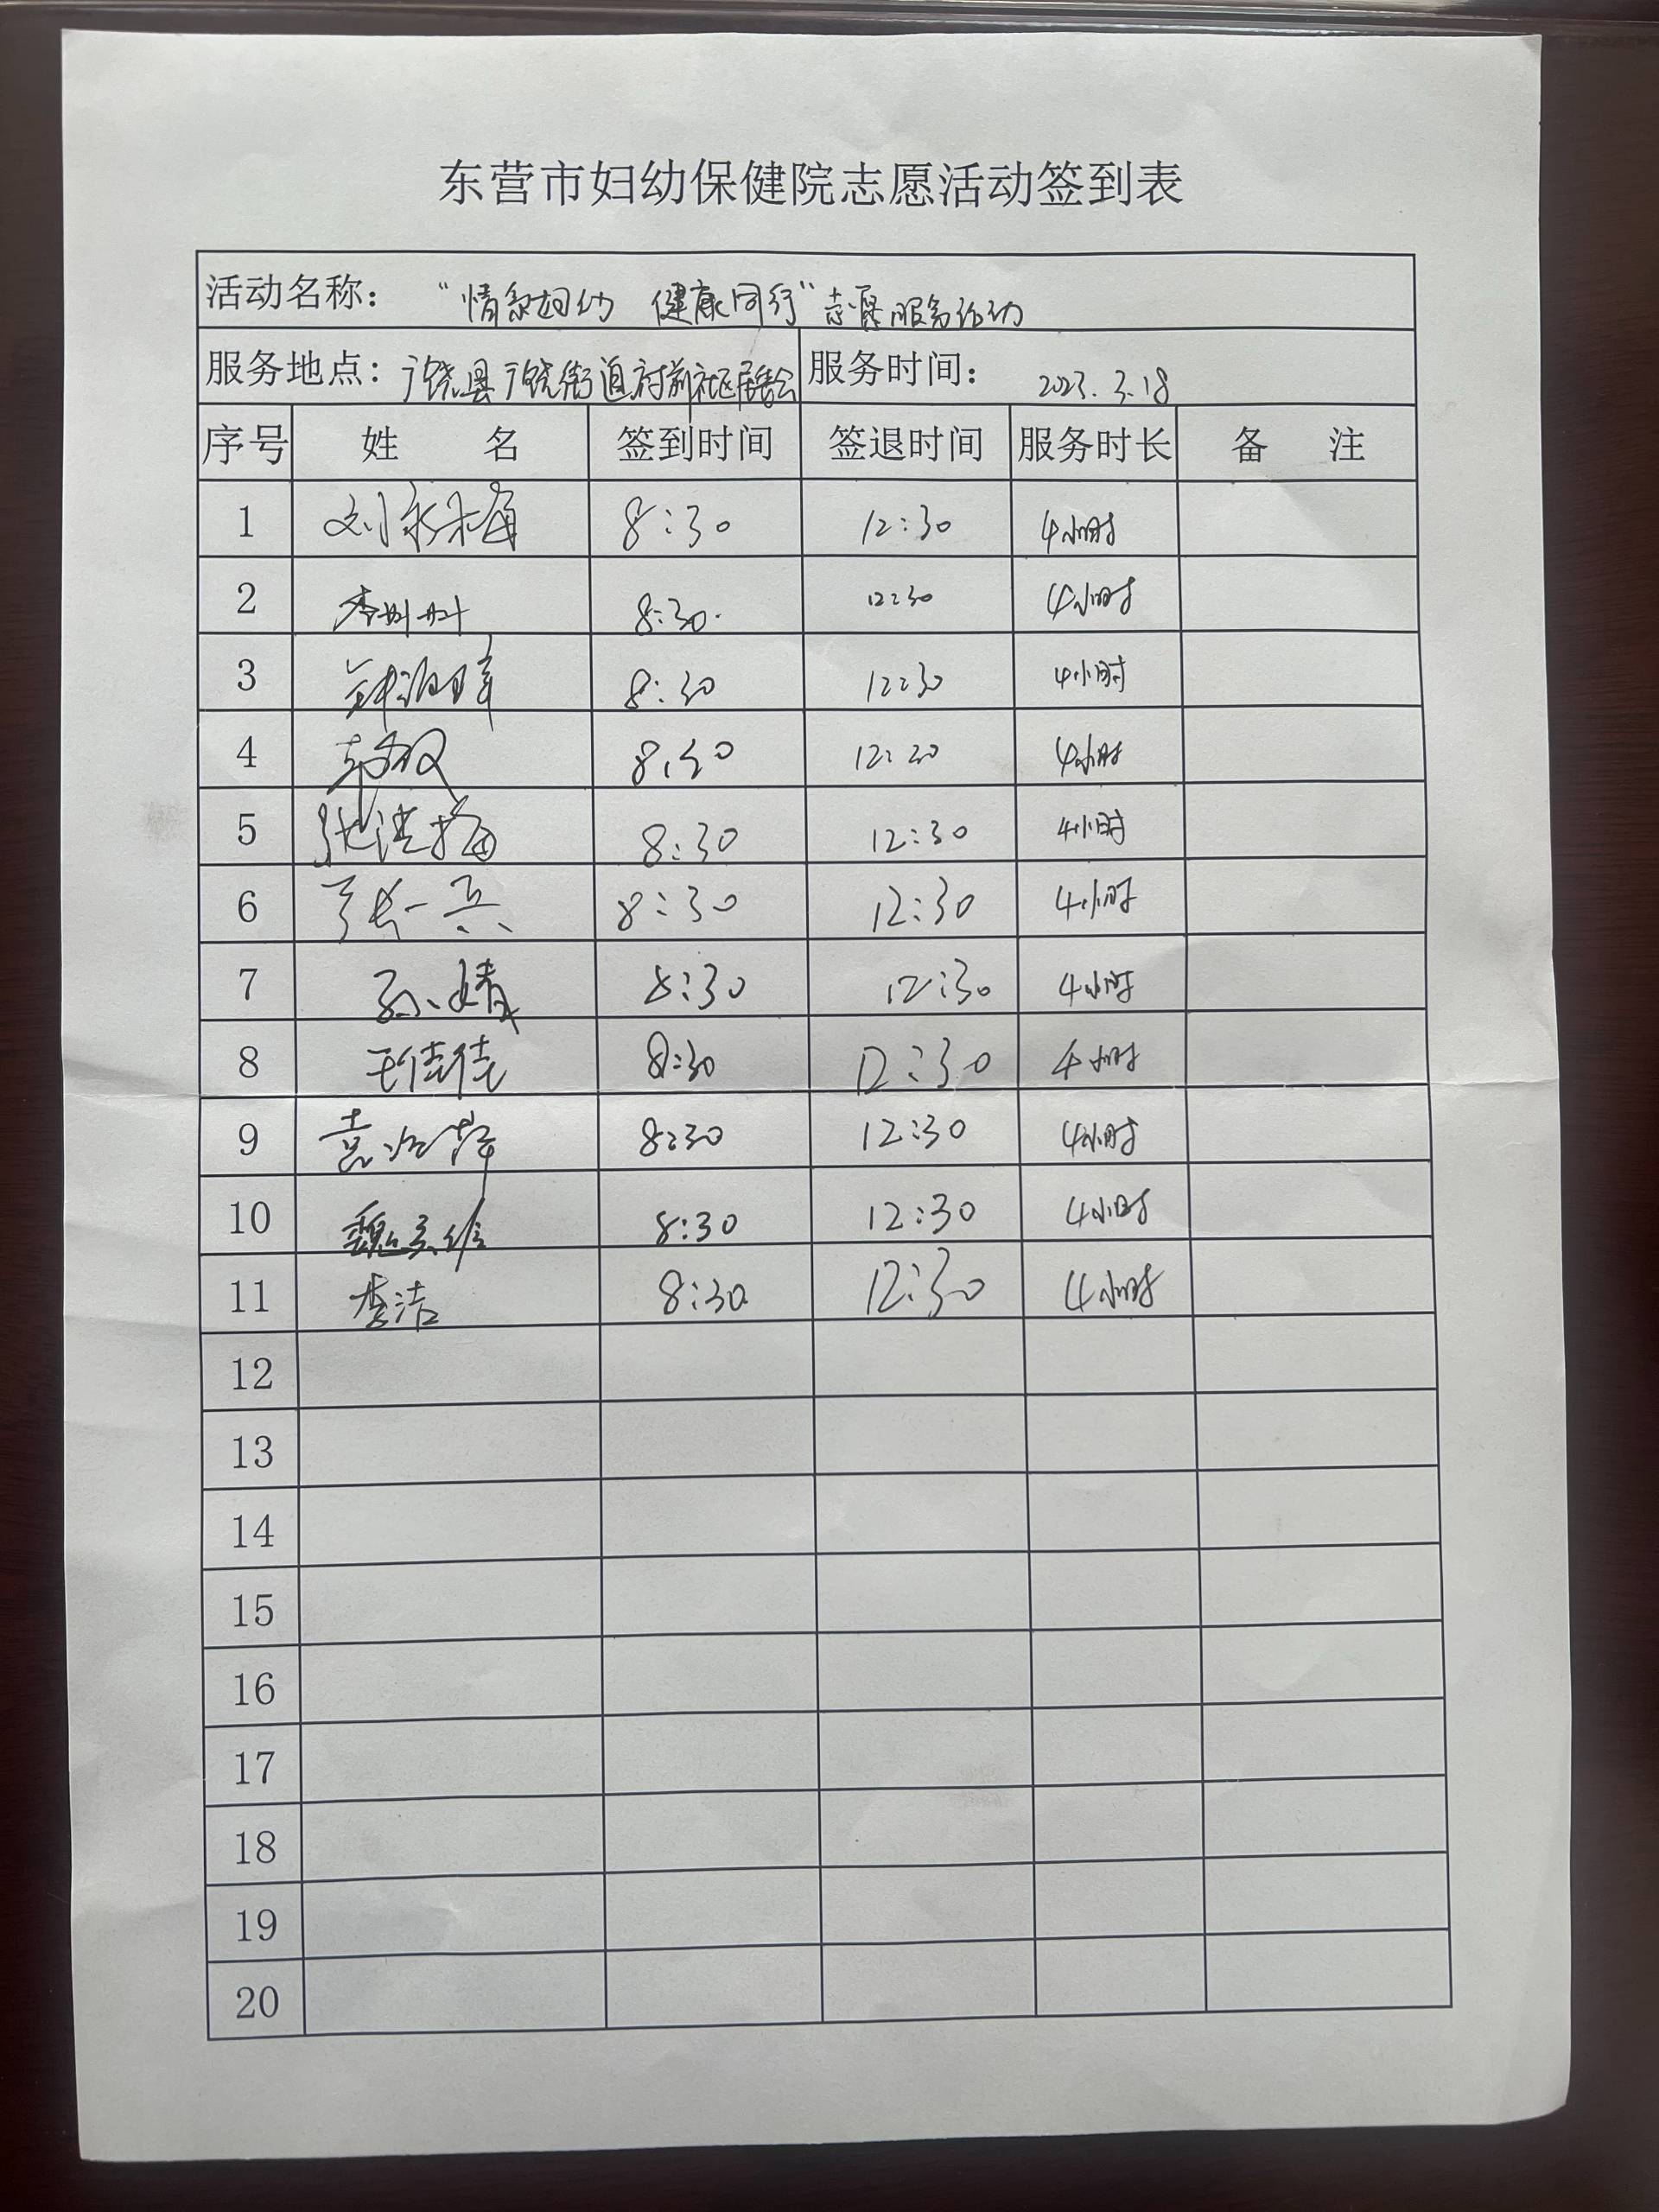 东营市妇幼保健院志愿活动签到表
活动名称： “情系妇幼 健康同行”志愿服务活动
服务地点：广饶县广饶街道府前社区居委会 服务时间： 2023.3.18
序号 姓 名 签到时间 签退时间 服务时长 备 注
1 刘永梅 8:30 12:30 4小时
2 8:30. 12:30 4小时
3 8:30 12:30 4小时
4 8:30 12:30 4小时
5 张洪梅 8:30 12:30 4小时
6 张一兵 8:30 12:30 4小时
7 孙婧 8:30 12:30 4小时
8 王佳佳 8:30 12:30 4小时
9 袁 8:30 12:30 4小时
10 魏 8:30 12:30 4小时
11 李洁 8:30 12:30 4小时
12
13
14
15
16
17
18
19
20